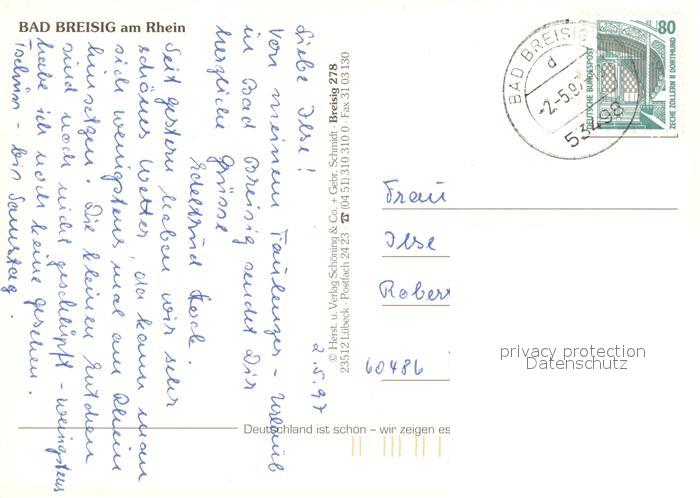 BAD BREISIG am Rhein
2.5.97
Liebe Ilse!
Von meinem Faulenzer-Urlaub
in Bad Breisig sendet Dir
herzliche Grüsse
Edeltrud
Seit gestern haben wir sehr
schönes Wetter, da kann man
sich wenigstens mal am Rhein
hinsetzen. Die kleinen Entchen
sind noch nicht geschlüpft - wenigstens
habe ich noch keine gesehen.
Tschüss - bis Samstag.
© Herst. u. Verlag Schöning & Co. + Gebr. Schmidt · Breisig 278
23512 Lübeck · Postfach 24 23 · ☎ (04 51) 310 310 0 · Fax 31 03 130
BAD BREISIG
d
-2.-5.97
53498
80
DEUTSCHE BUNDESPOST
ZECHE ZOLLERN II DORTMUND
Frau
Ilse
Robert
60486
privacy protection
Datenschutz
Deutschland ist schön – wir zeigen es